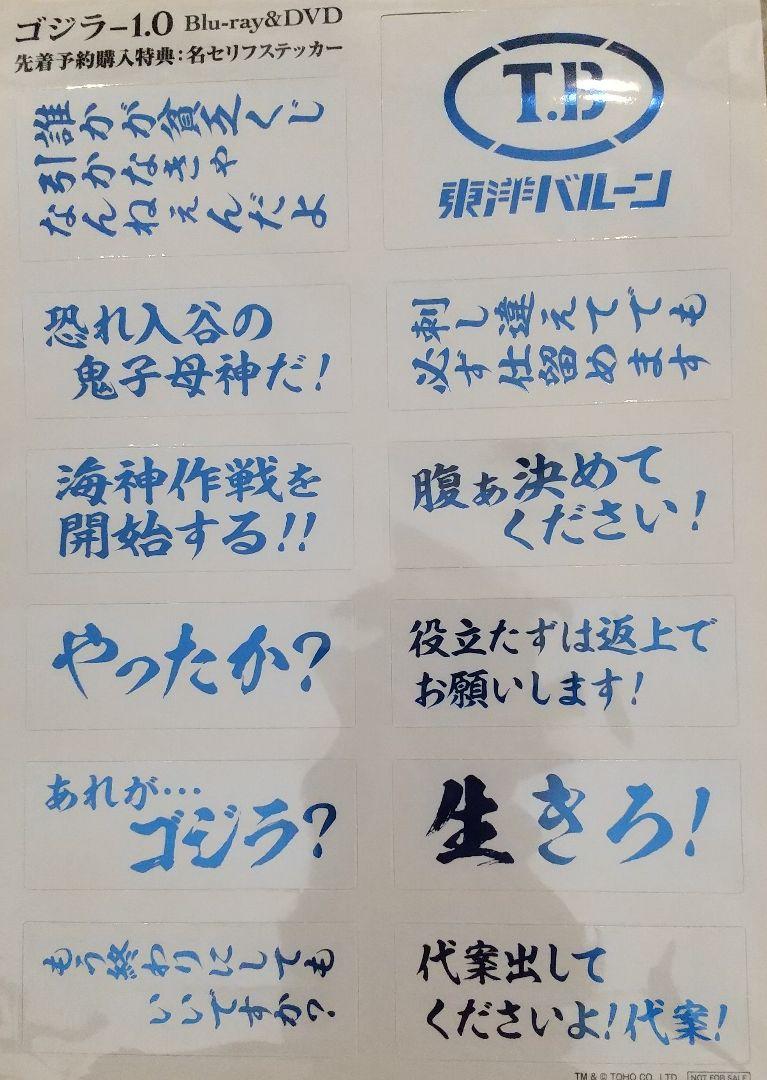 ゴジラ-1.0 Blu-ray&DVD
先着予約購入特典:名セリフステッカー
誰かが貧乏くじ
引かなきゃ
なんねぇんだよ
T.B
東洋バルーン
恐れ入谷の
鬼子母神だ!
刺し違えてでも
必ず仕留めます
海神作戦を
開始する!!
腹ぁ決めて
ください!
やったか?
役立たずは返上で
お願いします!
あれが…
ゴジラ?
生きろ!
もう終わりにしても
いいですか?
代案出して
くださいよ!代案!
TM & © TOHO CO., LTD.
NOT FOR SALE